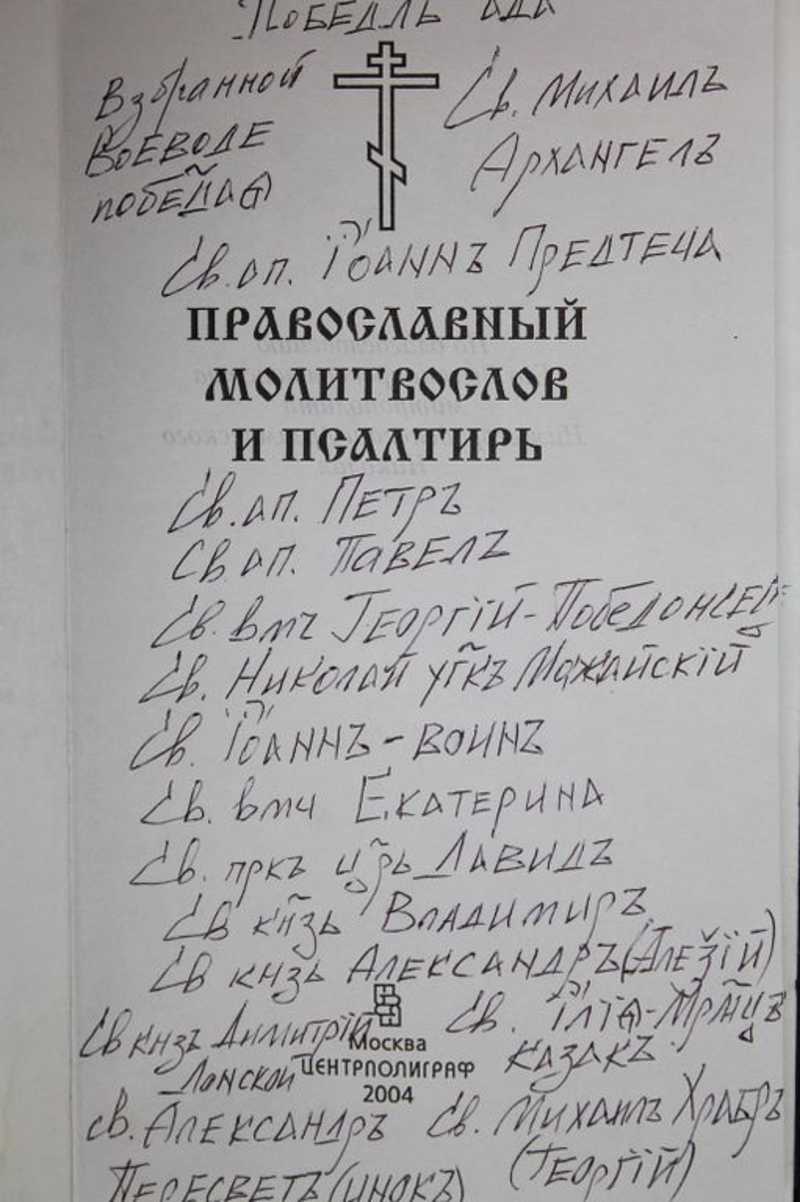 Победль ада
Взбранной
Воеводе
Св. Михаилъ
Архангелъ
Св. ап. Іоаннъ Предтеча
ПРАВОСЛАВНЫЙ
МОЛИТВОСЛОВ
И ПСАЛТИРЬ
Св. ап. Петръ
Св. ап. Павелъ
Св. вмч Георгій-
Св. Николай угкъ Можайскій
Св. Іоаннъ-воинъ
Св. вмч Екатерина
Св. пркъ црь Давидъ
Св кнзь Владимиръ
Св кнзь Александръ (Алеѯій)
Св кнзъ Димитрій
Донской
Св. Ілїа-
казакъ
Москва
ЦЕНТРПОЛИГРАФ
2004
св. Александръ
Пересветъ (инокъ)
Св. Михаилъ Храбръ
(Георгій)